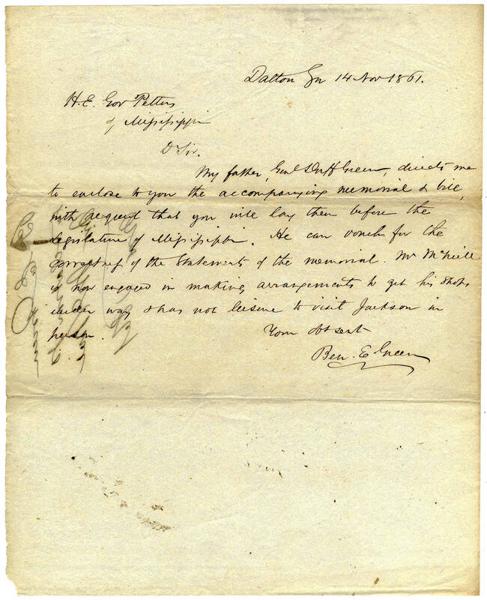 Dalton Ga 14 Nov 1861.
H. E. Gov Pettus
of Mississippi
D Sir.
My father, Genl Duff Green, directs me
to enclose to you the accompanying memorial & bill,
with request that you will lay them before the
Legislature of Mississippi. He can vouch for the
correctness of the statements of the memorial. Mr McNeill
is now engaged in making arrangements to get his shops
under way & has not leisure to visit Jackson in
person.
Your obt servt
Ben. E Green